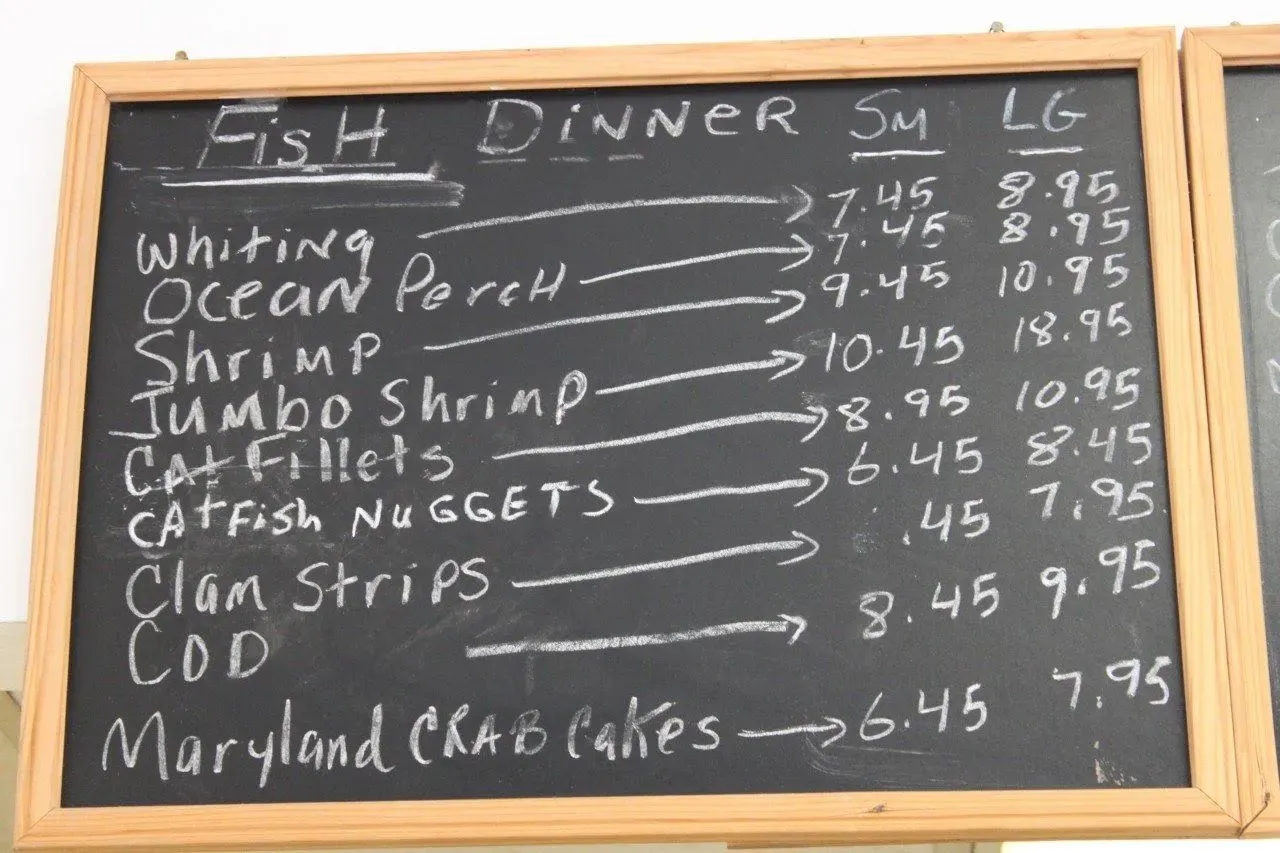 FisH DiNNeR SM LG
WhitiNg 7.45 8.95
OceaN PercH 7.45 8.95
ShriMP 9.45 10.95
JuMBo ShriMP 10.45 18.95
CAt Fillets 8.95 10.95
CAtFish NuGGETS 6.45 8.45
Clam StriPS .45 7.95
COD 8.45 9.95
Maryland CRAB CaKes 6.45 7.95